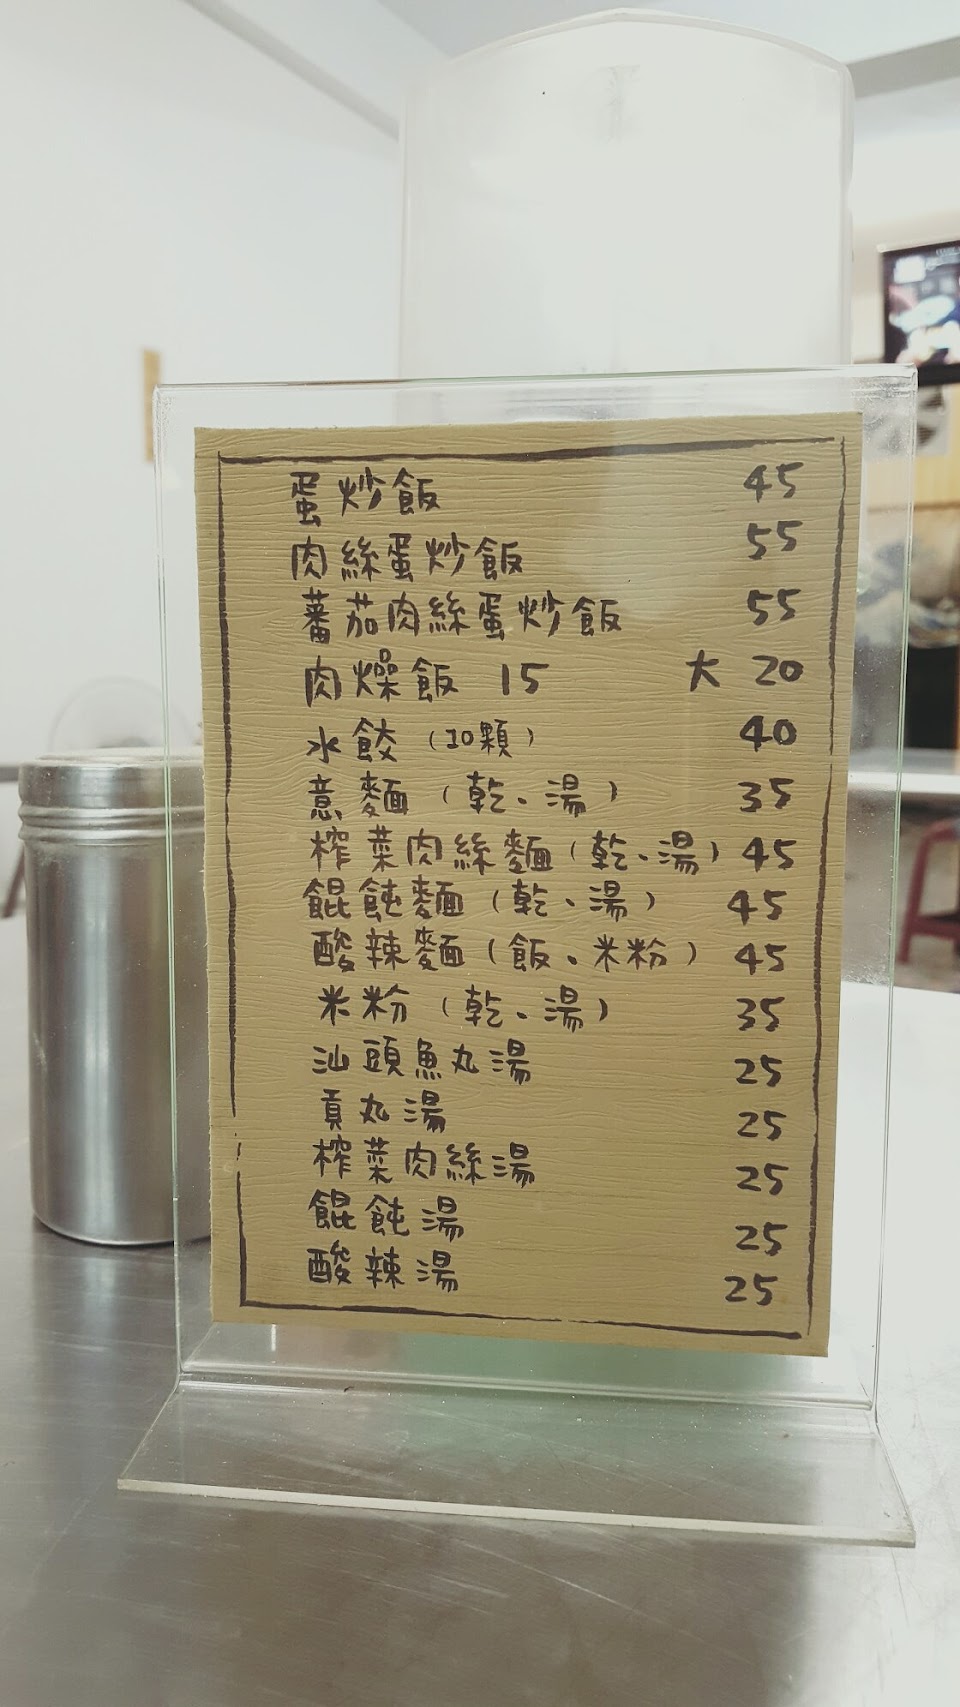 蛋炒飯 45
肉絲蛋炒飯 55
蕃茄肉絲蛋炒飯 55
肉燥飯 15 大 20
水餃（10顆） 40
意麵（乾、湯） 35
榨菜肉絲麵（乾、湯） 45
餛飩麵（乾、湯） 45
酸辣麵（飯、米粉） 45
米粉（乾、湯） 35
汕頭魚丸湯 25
貢丸湯 25
榨菜肉絲湯 25
餛飩湯 25
酸辣湯 25